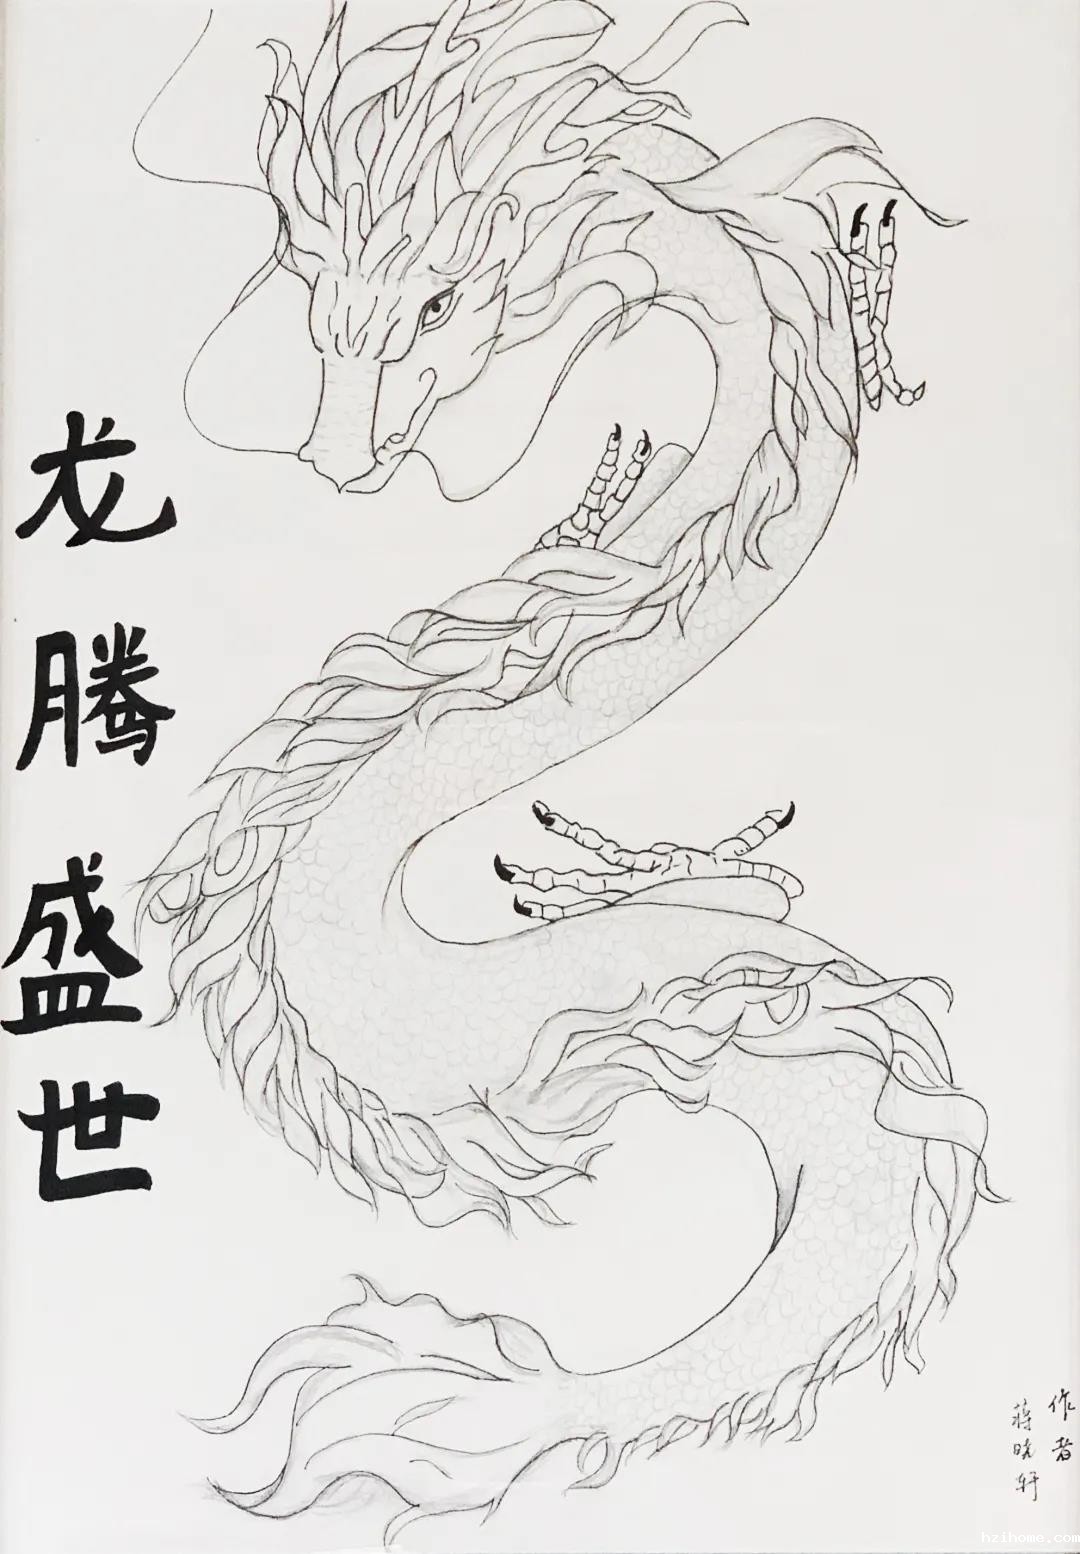 龙腾盛世
作者
蒋晓轩
hzihome.com